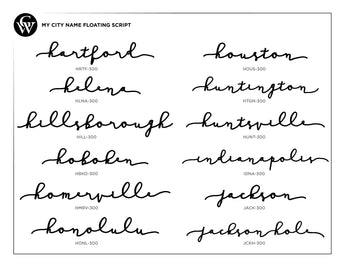 CW
MY CITY NAME FLOATING SCRIPT
hartford
HRTF-300
houston
HOUS-300
helena
HLNA-300
huntington
HTGN-300
hillsborough
HILL-300
huntsville
HUNT-300
hoboken
HBKO-300
indianapolis
IDNA-300
homerville
HMRV-300
jackson
JACK-300
honolulu
HONL-300
jackson hole
JCKH-300